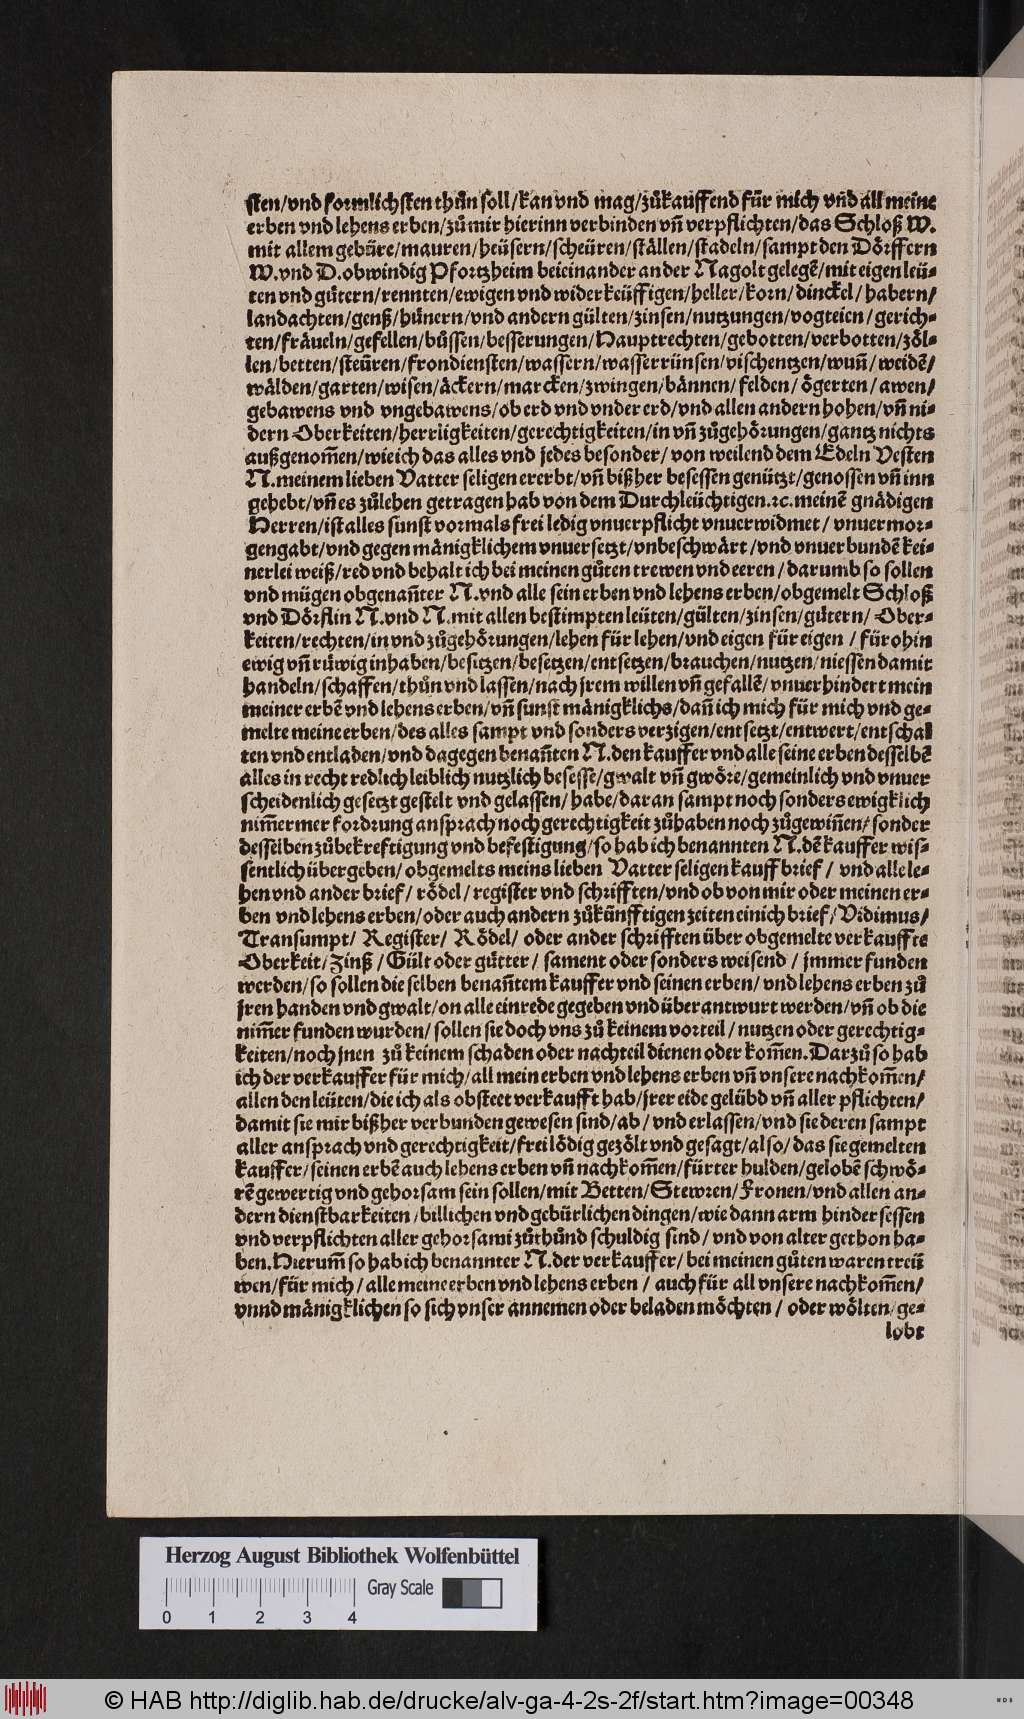 sten/vnd formlichsten thůn soll/kan vnd mag/zůkauffend für mich vñd all meine
erben vnd lehens erben/zů mir hierinn verbinden vñ verpflichten/das Schloß W.
mit allem gebüre/mauren/heüsern/scheüren/ställen/stadeln/sampt den Dörffern
W.vnd D.obwindig Pfortzheim beieinander an der Nagolt gelegē/mit eigen leü-
ten vnd gütern/rennten/ewigen vnd widerkeüffigen/heller/korn/dinckel/habern/
landachten/genß/hünern/vnd andern gülten/zinsen/nutzungen/vogteien/gerich-
ten/fräueln/gefellen/bůssen/besserungen/Hauptrechten/gebotten/verbotten/zöl-
len/betten/steüren/frondiensten/wassern/wasserrünsen/vischentzen/wuñ/weidē/
wälden/garten/wisen/äckern/marcken/zwingen/bännen/felden/ögerten/awen/
gebawens vnd vngebawens/ob erd vnd vnder erd/vnd allen andern hohen/vñ ni-
dern Oberkeiten/herrligkeiten/gerechtigkeiten/in vñ zůgehörungen/gantz nichts
außgenom̃en/wie ich das alles vnd jedes besonder/von weilend dem Edeln Vesten
N.meinem lieben Vatter seligen ererbt/vñ bißher besessen genützt/genossen vñ inn
gehebt/vñ es zůlehen getragen hab von dem Durchleüchtigen.⁊c.meinē gnädigen
Herren/ist alles sunst vormals frei ledig vnuerpflicht vnuerwidmet/vnuermor-
gengabt/vnd gegen mänigklichem vnuersetzt/vnbeschwärt/vnd vnuerbundē kei-
nerlei weiß/red vnd behalt ich bei meinen gůten trewen vnd eeren/darumb so sollen
vnd mügen obgenañter N.vnd alle sein erben vnd lehens erben/obgemelt Schloß
vnd Dörflin N.vnd N.mit allen bestimpten leüten/gülten/zinsen/gütern/Ober-
keiten/rechten/in vnd zůgehörungen/lehen für lehen/vnd eigen für eigen/fürohin
ewig vñ rüwig inhaben/besitzen/besetzen/entsetzen/brauchen/nutzen/niessen damit
handeln/schaffen/thůn vnd lassen/nach jrem willen vñ gefallē/vnuerhindert mein
meiner erbē vnd lehens erben/vñ sunst mänigklichs/dañ ich mich für mich vnd ge-
melte meine erben/des alles sampt vnd sonders verzigen/entsetzt/entwert/entschal
ten vnd entladen/vnd dagegen benañten N.den kauffer vnd alle seine erben desselbē
alles in recht redlich leiblich nutzlich besesse/gwalt vñ gwöre/gemeinlich vnd vnuer
scheidenlich gesetzt gestelt vnd gelassen/habe/daran sampt noch sonders ewigklich
nim̃ermer fordrung ansprach noch gerechtigkeit zůhaben noch zůgewiñen/sonder
desselben zůbekreftigung vnd befestigung/so hab ich benannten N.dē kauffer wis-
sentlich übergeben/obgemelts meins lieben Vatter seligen kauffbrief/vnd alle le-
hen vnd ander brief/rödel/register vnd schrifften/vnd ob von mir oder meinen er-
ben vnd lehens erben/oder auch andern zůkünfftigen zeiten einich brief/Vidimus/
Transumpt/Register/Rödel/oder ander schrifften über obgemelte verkauffte
Oberkeit/Zinß/Gült oder gütter/sament oder sonders weisend/jmmer funden
werden/so sollen die selben benañtem kauffer vnd seinen erben/vnd lehens erben zů
jren handen vnd gwalt/on alle einrede gegeben vnd überantwurt werden/vñ ob die
nim̃er funden wurden/sollen sie doch vns zů keinem vorteil/nutzen oder gerechtig-
keiten/noch jnen zů keinem schaden oder nachteil dienen oder kom̃en.Darzů so hab
ich der verkauffer für mich/all mein erben vnd lehens erben vñ vnsere nachkom̃en/
allen den leüten/die ich als obsteet verkaufft hab/jrer eide gelübd vñ aller pflichten/
damit sie mir bißher verbunden gewesen sind/ab/vnd erlassen/vnd sie deren sampt
aller ansprach vnd gerechtigkeit/frei lödig gezölt vnd gesagt/also/das sie gemelten
kauffer/seinen erbē auch lehens erben vñ nachkom̃en/fürter hulden/gelobē schwö-
rē gewertig vnd gehorsam sein sollen/mit Betten/Stewren/Fronen/vnd allen an-
dern dienstbarkeiten/billichen vnd gebürlichen dingen/wie dann arm hindersessen
vnd verpflichten aller gehorsami zůthůnd schuldig sind/vnd von alter gethon ha-
ben.Hierum̃ so hab ich benannter N.der verkauffer/bei meinen gůten waren treü
wen/für mich/alle meine erben vnd lehens erben/auch für all vnsere nachkom̃en/
vnnd mänigklichen so sich vnser annemen oder beladen möchten/oder wölten/ge-
lobt
Herzog August Bibliothek Wolfenbüttel
Gray Scale
0 1 2 3 4
© HAB http://diglib.hab.de/drucke/alv-ga-4-2s-2f/start.htm?image=00348